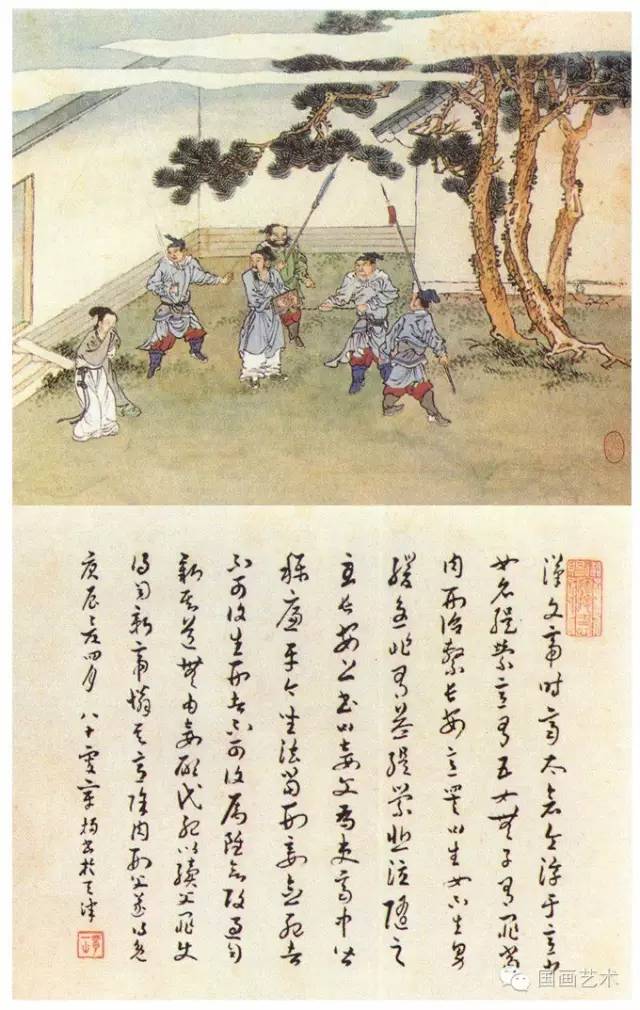 漢文帝時齊太倉令淳于意小
女名緹縈意有五女無子有罪當
肉刑詔繫長安意罵以生女不生男
緩急非有益緹縈悲泣隨之
至長安上書以妾父為吏齊中皆
稱廉平今坐法當刑妾死者
不可復生刑者不可復屬雖欲改過自
新其道無由妾願代死以贖父罪使
得自新帝憐其意除肉刑父遂得免
庚辰夏四月 八十叟章梫書於天津
国画艺术